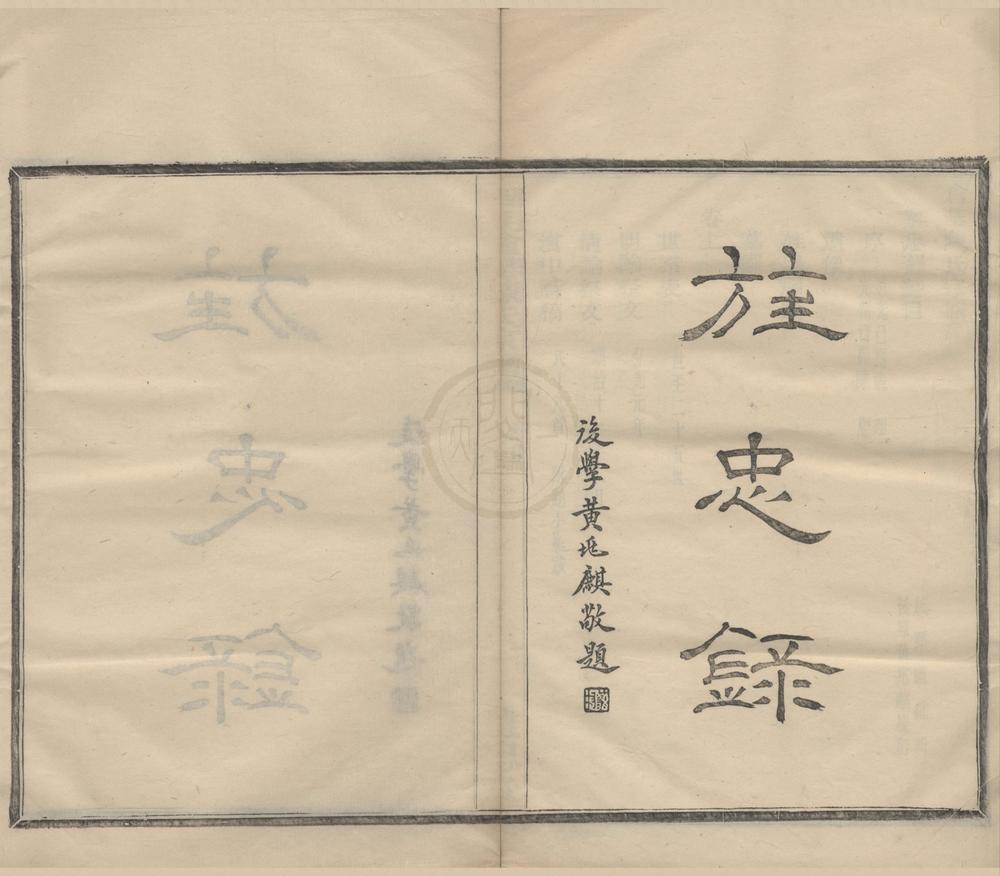 旌忠録
後學黄兆麒敬題